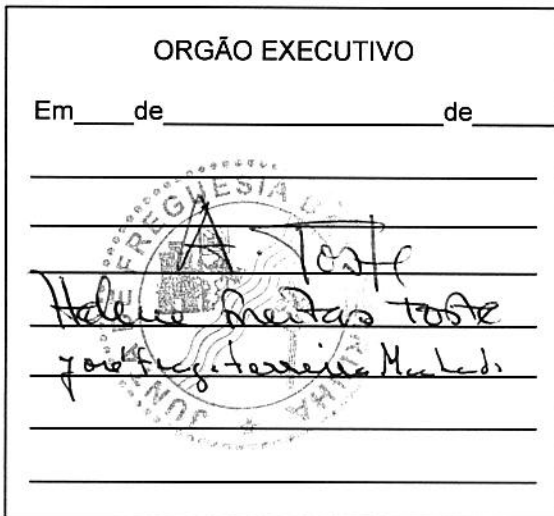 ORGÃO EXECUTIVO
Em____de____________________de_____
JUNTA DE FREGUESIA D
A. Toste
Helena Freitas Toste
José Ferreira Machado